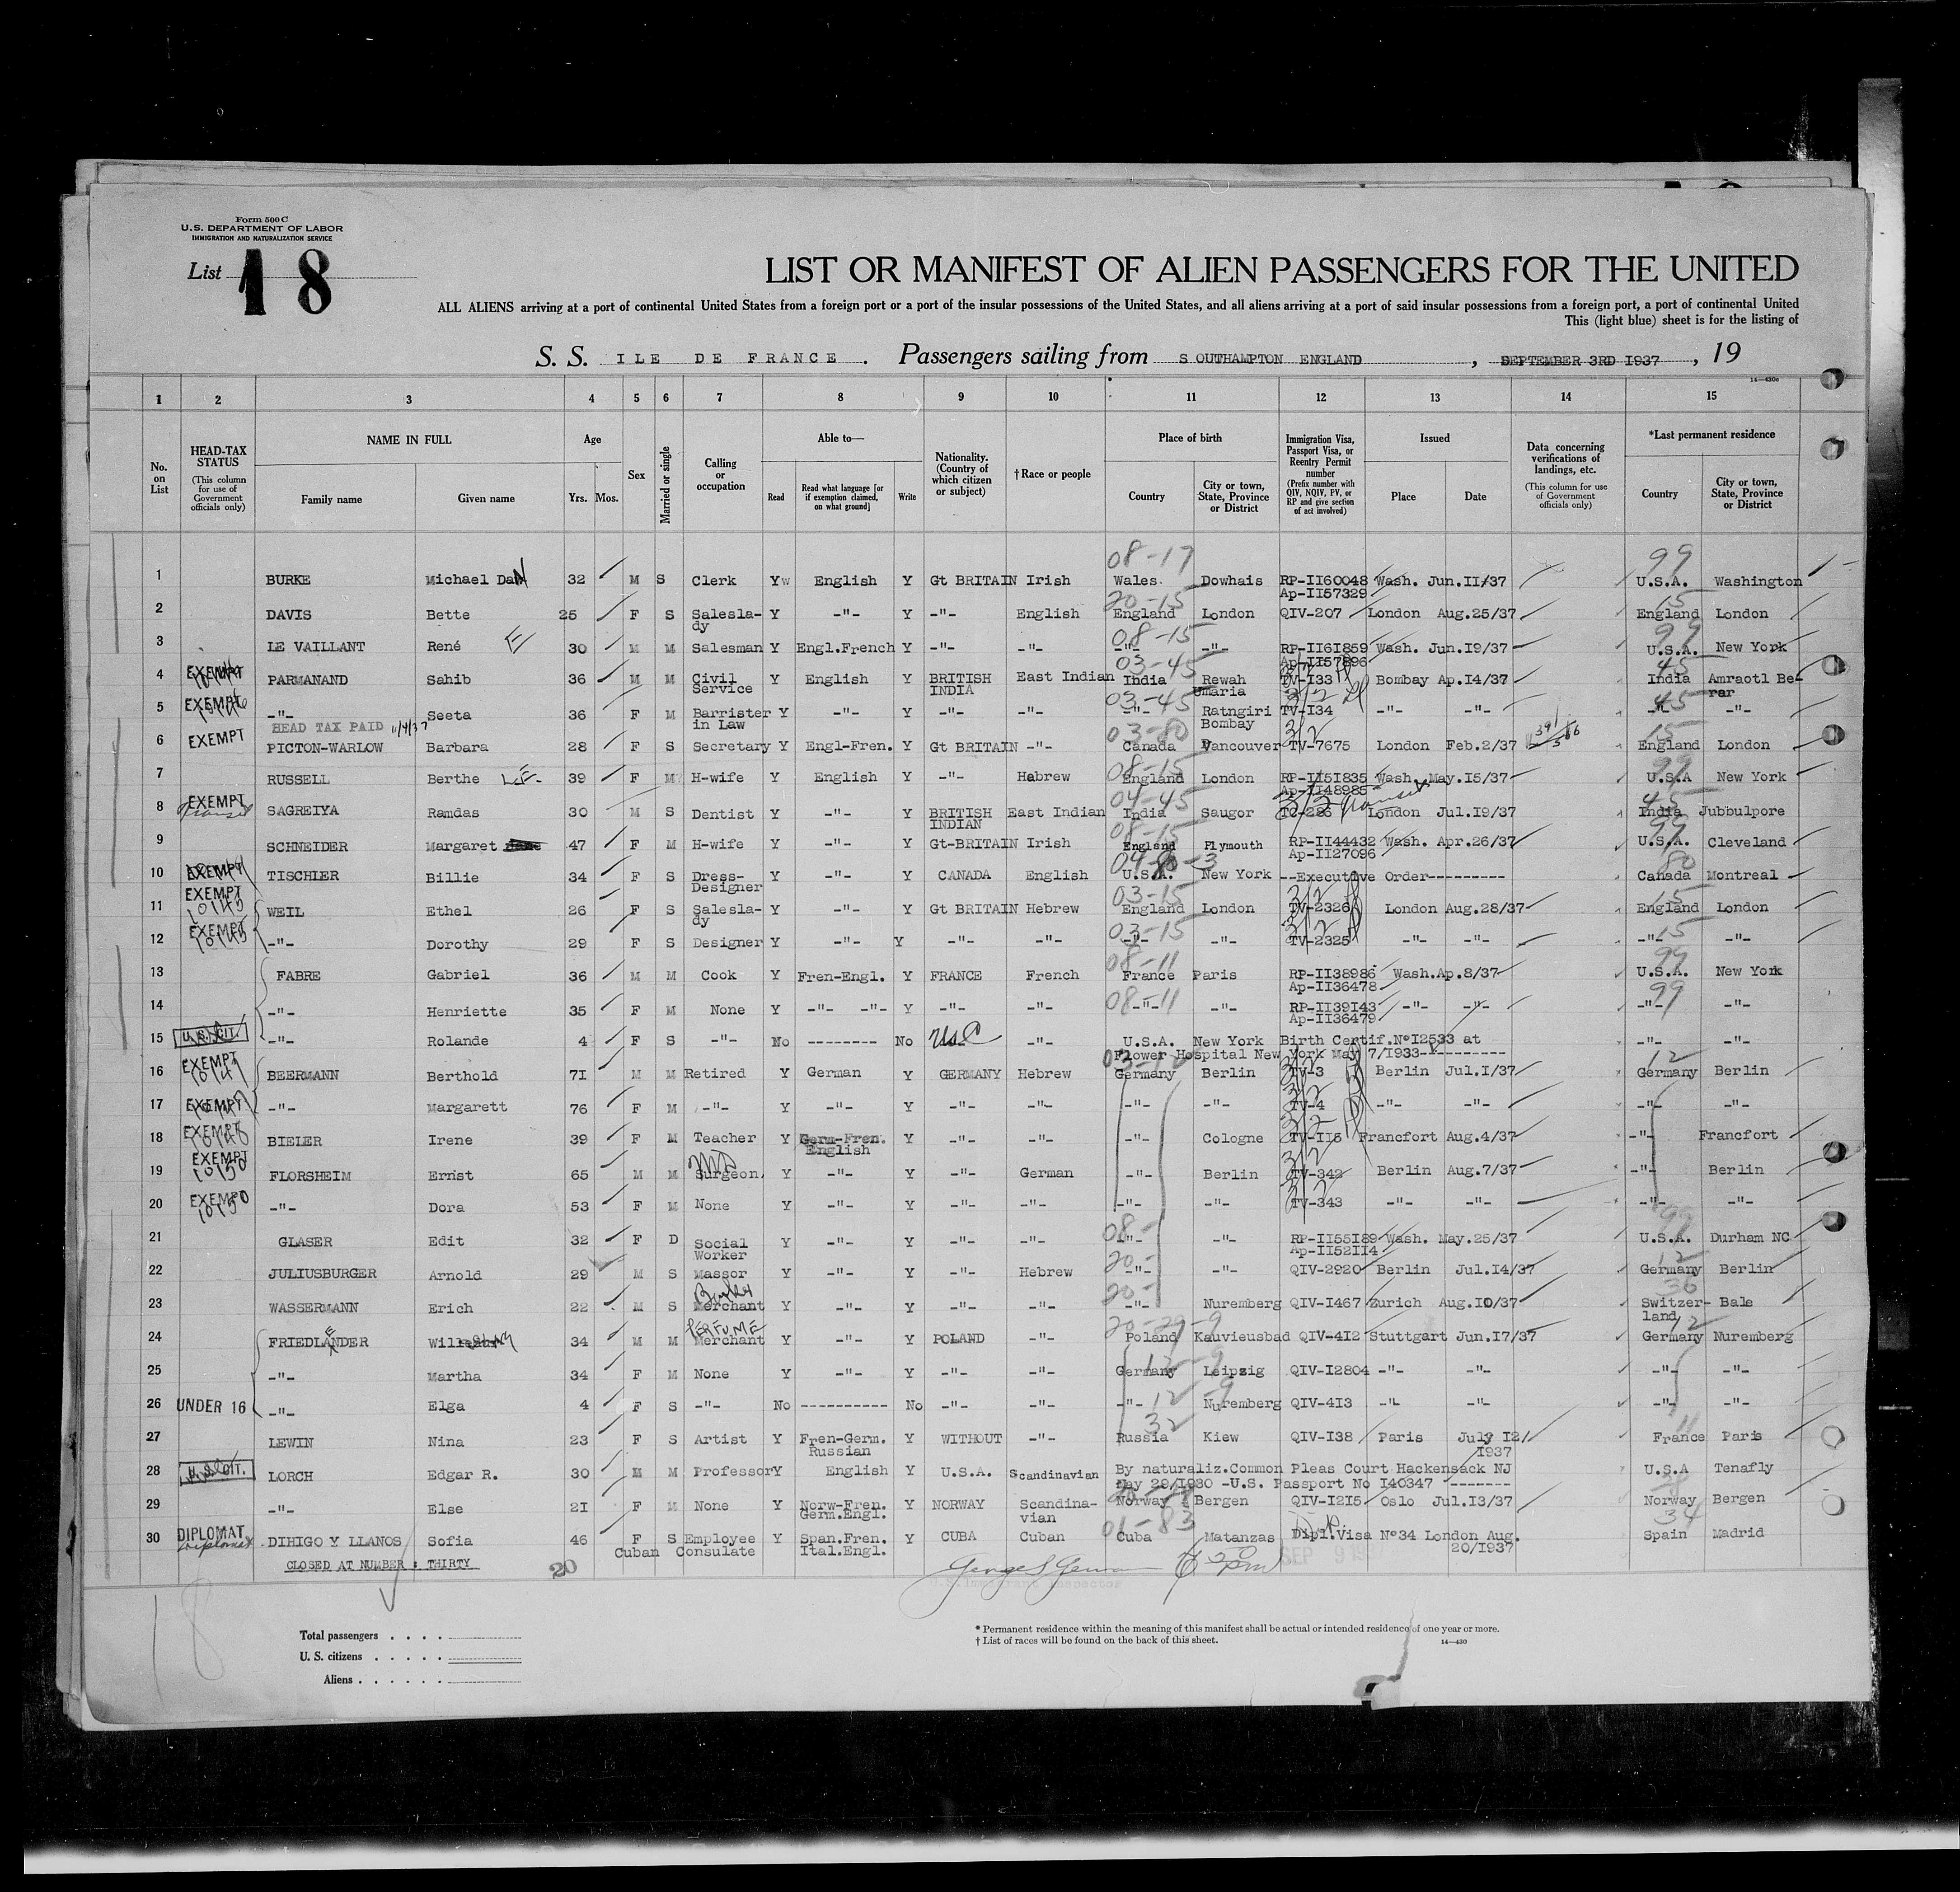 Form 500 C
U.S. DEPARTMENT OF LABOR
IMMIGRATION AND NATURALIZATION SERVICE
List 18
LIST OR MANIFEST OF ALIEN PASSENGERS FOR THE UNITED
ALL ALIENS arriving at a port of continental United States from a foreign port or a port of the insular possessions of the United States, and all aliens arriving at a port of said insular possessions from a foreign port, a port of continental United
This (light blue) sheet is for the listing of
S. S. ILE DE FRANCE . Passengers sailing from SOUTHAMPTON ENGLAND , SEPTEMBER 3RD 1937 , 19
14—430c
1 2 3 4 5 6 7 8 9 10 11 12 13 14 15
No. on List
HEAD-TAX STATUS (This column for use of Government officials only)
NAME IN FULL Family name Given name
Age Yrs. Mos.
Sex
Married or single
Calling or occupation
Able to— Read Read what language [or if exemption claimed, on what ground] Write
Nationality. (Country of which citizen or subject)
†Race or people
Place of birth Country City or town, State, Province or District
Immigration Visa, Passport Visa, or Reentry Permit number (Prefix number with QIV, NQIV, PV, or RP and give section of act involved)
Issued Place Date
Data concerning verifications of landings, etc. (This column for use of Government officials only)
*Last permanent residence Country City or town, State, Province or District
08-17 99
1 BURKE Michael Dan 32 M S Clerk Y English Y Gt BRITAIN Irish Wales Dowhais RP-II60048 Wash. Jun.II/37 U.S.A. Washington
Ap-II57329
20-15 15
2 DAVIS Bette 25 F S Salesla- Y -"- Y -"- English England London QIV-207 London Aug.25/37 England London
dy
08-15 99
3 LE VAILLANT René 30 M M Salesman Y Engl.French Y -"- -"- -"- -"- RP-II6I859 Wash. Jun.I9/37 U.S.A. New York
Ap-II57896
03-45 45
4 EXEMPT PARMANAND Sahib 36 M M Civil Y English Y BRITISH East Indian India Rewah TV-I33 Bombay Ap.I4/37 India Amraotl Be-
Service INDIA Umaria rar
03-45 45
5 EXEMPT -"- Seeta 36 F M Barrister Y -"- Y -"- -"- -"- Ratngiri TV-I34 -"- -"- -"- -"-
HEAD TAX PAID 11/4/37 in Law Bombay
03-80 15
6 EXEMPT PICTON-WARLOW Barbara 28 F S Secretary Y Engl-Fren. Y Gt BRITAIN -"- Canada Vancouver TV-7675 London Feb.2/37 England London
08-15 99
7 RUSSELL Berthe 39 F M H-wife Y English Y -"- Hebrew England London RP-II5I835 Wash. May.I5/37 U.S.A New York
Ap-II48985
04-45 3/2 transit 45
8 EXEMPT Transit SAGREIYA Ramdas 30 M S Dentist Y -"- Y BRITISH East Indian India Saugor TC-286 London Jul.I9/37 India Jubbulpore
INDIAN
08-15 99
9 SCHNEIDER Margaret 47 F M H-wife Y -"- Y Gt-BRITAIN Irish England Plymouth RP-II44432 Wash. Apr.26/37 U.S.A. Cleveland
Ap-II27096
80
10 EXEMPT TISCHLER Billie 34 F S Dress- Y -"- Y CANADA English U.S.A. New York --Executive Order--------- Canada Montreal
Designer
03-15 15
11 EXEMPT WEIL Ethel 26 F S Salesla- Y -"- Y Gt BRITAIN Hebrew England London TV-2326 London Aug.28/37 England London
dy
03-15 15
12 EXEMPT -"- Dorothy 29 F S Designer Y -"- Y -"- -"- -"- -"- TV-2325 -"- -"- -"- -"-
08-11 99
13 FABRE Gabriel 36 M M Cook Y Fren-Engl. Y FRANCE French France Paris RP-II38986 Wash.Ap.8/37 U.S.A. New York
Ap-II36478
08-11 99
14 -"- Henriette 35 F M None Y -"- -"- Y -"- -"- -"- -"- RP-II39I43 -"- -"- -"- -"-
Ap-II36479
15 U.S.CIT. -"- Rolande 4 F S -"- No -------- No USC -"- U.S.A. New York Birth Certif.N°I2533 at -"- -"-
Flower Hospital New York May 7/I933-----------
12
16 EXEMPT BEERMANN Berthold 7I M M Retired Y German Y GERMANY Hebrew Germany Berlin TV-3 Berlin Jul.I/37 Germany Berlin
17 EXEMPT -"- Margarett 76 F M -"- Y -"- Y -"- -"- -"- -"- TV-4 -"- -"- -"- -"-
18 EXEMPT BIELER Irene 39 F M Teacher Y Germ-Fren. Y -"- -"- -"- Cologne TV-II5 Francfort Aug.4/37 -"- Francfort
English
19 EXEMPT FLORSHEIM Ernst 65 M M Surgeon. Y -"- Y -"- German -"- Berlin TV-342 Berlin Aug.7/37 -"- Berlin
20 EXEMPT -"- Dora 53 F M None Y -"- Y -"- -"- -"- -"- TV-343 -"- -"- -"- -"-
08- 99
21 GLASER Edit 32 F D Social Y -"- Y -"- -"- -"- -"- RP-II55I89 Wash. May.25/37 U.S.A. Durham NC
Worker Ap-II52II4
20- 12
22 JULIUSBURGER Arnold 29 M S Massor Y -"- Y -"- Hebrew -"- -"- QIV-2920 Berlin Jul.I4/37 Germany Berlin
20- 36
23 WASSERMANN Erich 22 M S Merchant Y -"- Y -"- -"- -"- Nuremberg QIV-I467 Zurich Aug.I0/37 Switzer- Bale
land
PERFUME 12
24 FRIEDLÄNDER 34 M M Merchant Y -"- Y POLAND -"- Poland Kauvieusbad QIV-4I2 Stuttgart Jun.I7/37 Germany Nuremberg
25 -"- Martha 34 F M None Y -"- Y -"- -"- Germany Leipzig QIV-I2804 -"- -"- -"- -"-
26 UNDER 16 -"- Elga 4 F S -"- No ---------- No -"- -"- -"- Nuremberg QIV-4I3 -"- -"- -"- -"-
32 11
27 LEWIN Nina 23 F S Artist Y Fren-Germ. Y WITHOUT -"- Russia Kiew QIV-I38 Paris July I2/ France Paris
Russian I937
28 U.S.CIT. LORCH Edgar R. 30 M M Professor Y English Y U.S.A. Scandinavian By naturaliz.Common Pleas Court Hackensack NJ U.S.A Tenafly
May 29/I930 -U.S. Passport No I40347 -------
29 -"- Else 2I F M None Y Norw-Fren. Y NORWAY Scandina- Norway Bergen QIV-I2I5 Oslo Jul.I3/37 Norway Bergen
Germ.Engl. vian
01-83 Dip. 34
30 DIPLOMAT Diplomat DIHIGO Y LLANOS Sofia 46 F S Employee Y Span.Fren. Y CUBA Cuban Cuba Matanzas Dipl.Visa N°34 London Aug. Spain Madrid
Cuban Consulate Ital.Engl. 20/I937
CLOSED AT NUMBER : THIRTY 20
18
Total passengers
U. S. citizens
Aliens
* Permanent residence within the meaning of this manifest shall be actual or intended residence of one year or more.
† List of races will be found on the back of this sheet.
14—430